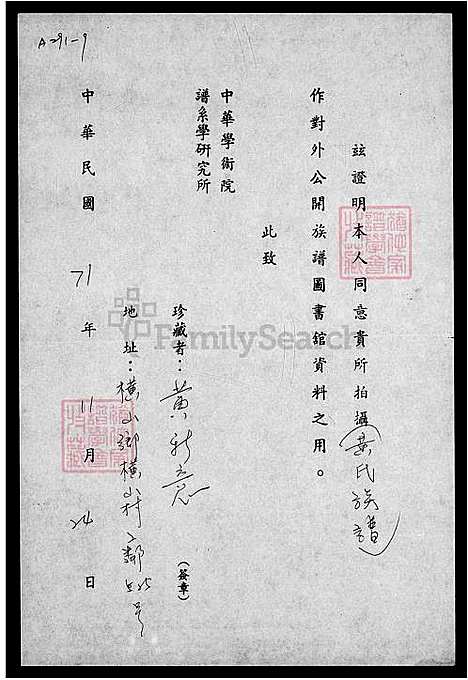 A291-9
玆證明本人同意貴所拍攝(黃氏族譜)
作對外公開族譜圖書舘資料之用。
此致
中華學術院
譜系學研究所
珍藏者：黃新意
(簽章)
地址：橫山鄉橫山村2鄰 號
中華民國 71 年 11 月 24 日
FamilySearch